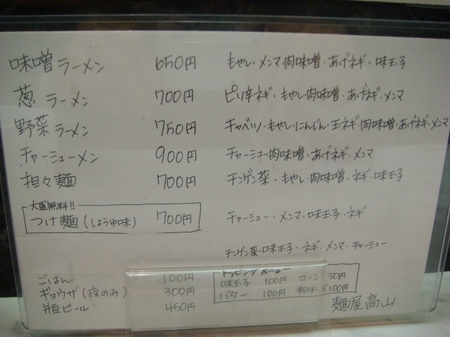 味噌ラーメン 650円 もやし・メンマ・肉味噌・あげネギ・味玉子
葱ラーメン 700円 ピリ辛ネギ・もやし・肉味噌・あげネギ・メンマ
野菜ラーメン 750円 キャベツ・もやし・にんじん・玉ネギ・肉味噌・あげネギ・メンマ
チャーシューメン 900円 チャーシュー・肉味噌・あげネギ・メンマ
担々麺 700円 チンゲン菜・もやし・肉味噌・ネギ・味玉子
大盛無料!!
つけ麺(しょうゆ味) 700円 チャーシュー・メンマ・味玉子・ネギ
チンゲン菜・味玉子・ネギ・メンマ・チャーシュー
ごはん 100円
ギョウザ(夜のみ) 300円
ビール 450円
トッピングメニュー
味玉子 100円 コーン 50円
バター 100円 100円
麺屋高山